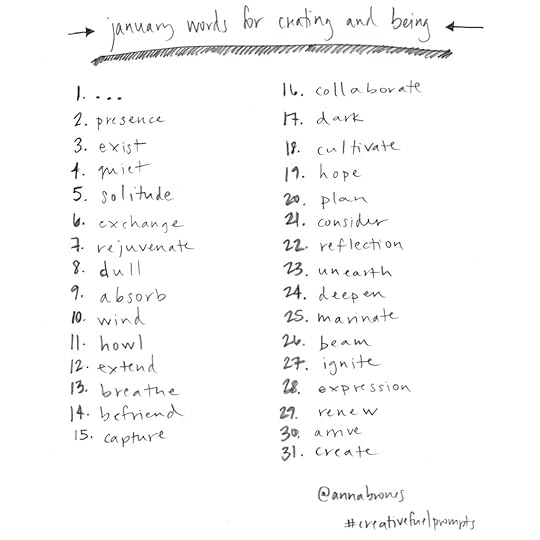 january words for crating and being
1. ...
2. presence
3. exist
4. quiet
5. solitude
6. exchange
7. rejuvenate
8. dull
9. absorb
10. wind
11. howl
12. extend
13. breathe
14. befriend
15. capture
16. collaborate
17. dark
18. cultivate
19. hope
20. plan
21. consider
22. reflection
23. unearth
24. deepen
25. marinate
26. beam
27. ignite
28. expression
29. renew
30. arrive
31. create
@annabrones
#creativefuelprompts